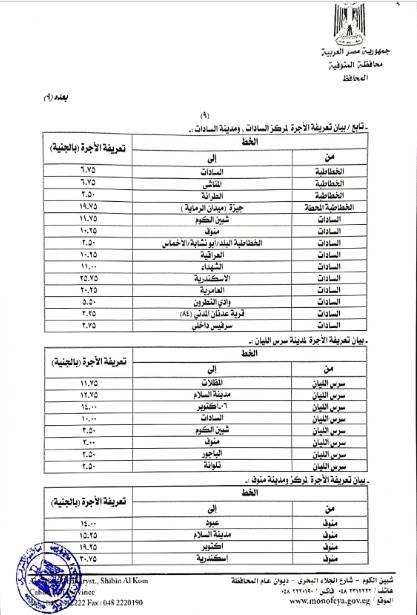 جمهورية مصر العربية
محافظة المنوفية
المحافظ
بعده (٩)
(٩)
ـ تابع / بيان تعريفة الأجرة لمركز السادات ، ومدينة السادات :ـ
الخط تعريفة الأجرة (بالجنية)
من إلى
الخطاطبة السادات ٦.٧٥
الخطاطبة المناشى ٦.٧٥
الخطاطبة الطرانة ٢.٥٠
الخطاطبة المحطة جيزة (ميدان الرماية) ١٩.٧٥
السادات شبين الكوم ١١.٧٥
السادات منوف ١٠.٢٥
السادات الخطاطبة البلد/أبو نشابة/الأخماس ٢.٥٠
السادات العراقية ١٠.٢٥
السادات الشهداء ١١.٠٠
السادات الاسكندرية ٢٥.٧٥
السادات العامرية ٢٠.٢٥
السادات وادي النطرون ٥.٥٠
السادات قرية عدنان المدني (٨٤) ٢.٢٥
السادات سرفيس داخلي ٢.٧٥
ـ بيان تعريفة الأجرة لمدينة سرس الليان :ـ
الخط تعريفة الأجرة (بالجنية)
من إلى
سرس الليان المظلات ١١.٧٥
سرس الليان مدينة السلام ١٢.٧٥
سرس الليان ٦ أكتوبر ١٤.٠٠
سرس الليان السادات ١٠.٠٠
سرس الليان شبين الكوم ٣.٥٠
سرس الليان منوف ٢.٠٠
سرس الليان الباجور ٢.٥٠
سرس الليان تلوانة ٢.٥٠
ـ بيان تعريفة الأجرة لمركز ومدينة منوف :ـ
الخط تعريفة الأجرة (بالجنية)
من إلى
منوف عبود ١٤.٠٠
منوف مدينة السلام ١٥.٢٥
منوف اكتوبر ١٩.٢٥
منوف اسكندرية ٣٠.٧٥
شبين الكوم – شارع الجلاء البحرى – ديوان عام المحافظة
هاتف / ٢٣١٢٢٢٢ ٠٤٨ فاكس / ٢٢٢٠١٩٠ ٠٤٨
الموقع / www.monofeya.gov.eg
Shabin Al Kom
Fax : 048 2220190